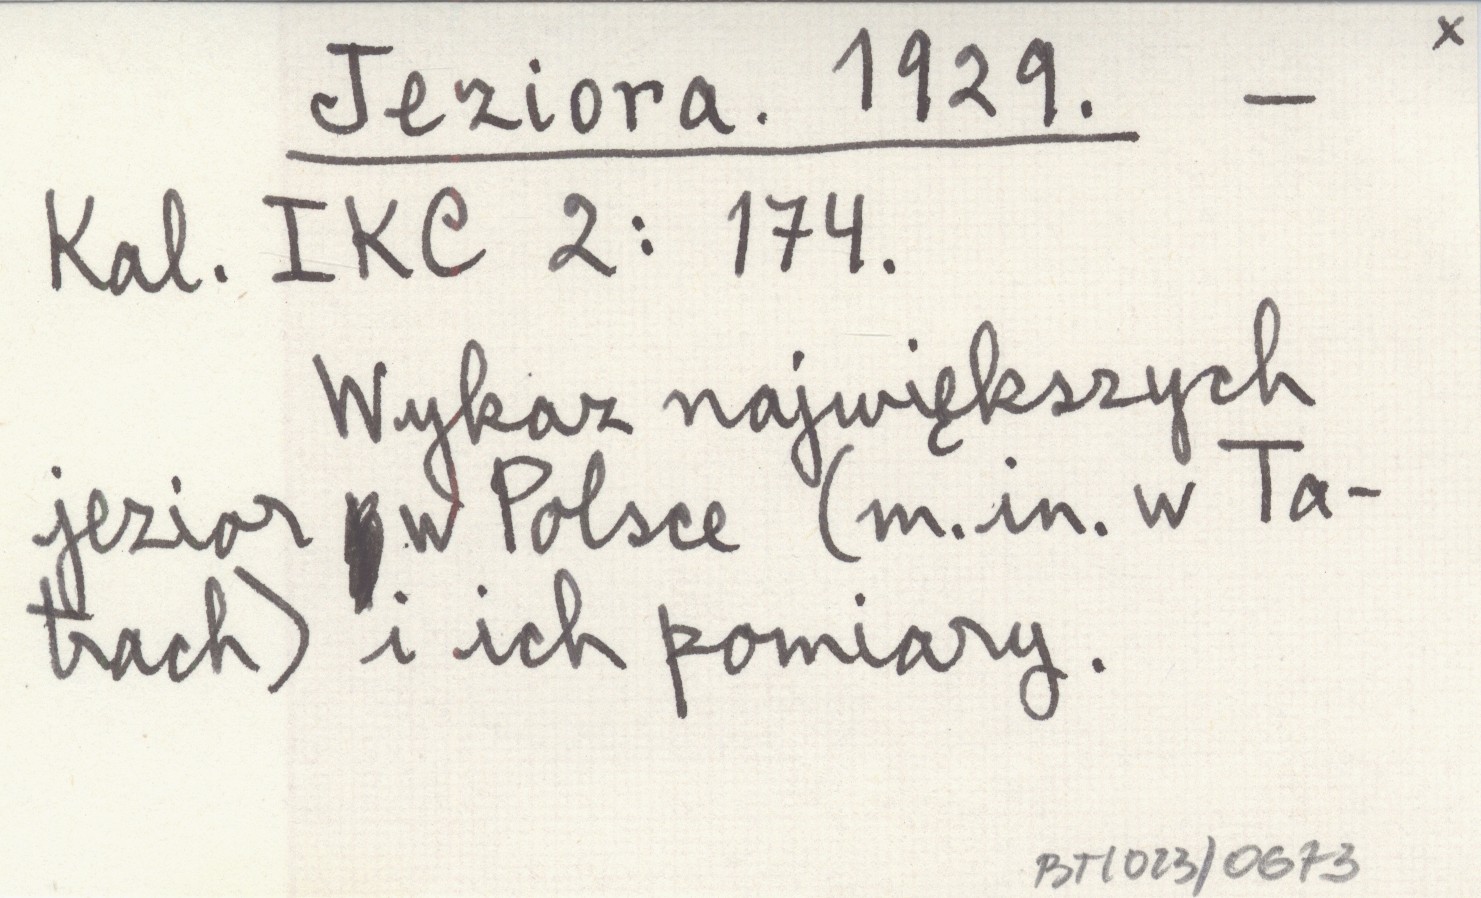 x
Jeziora. 1929. —
Kal. IKC 2: 174.
Wykaz największych
jezior w Polsce (m.in. w Ta-
trach) i ich pomiary.
BT/023/0673